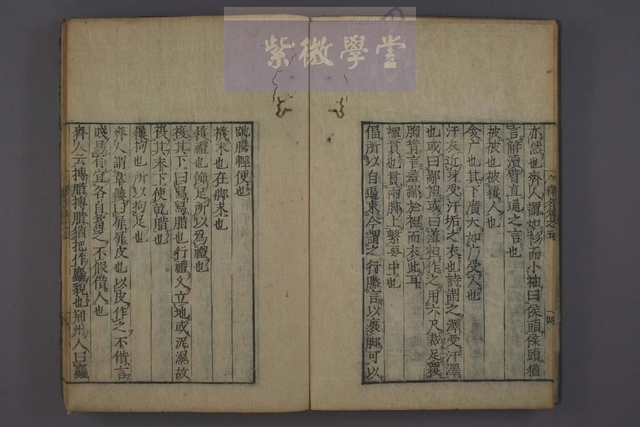 紫微學堂
亦然也齊人謂如衫而小袖曰侯頭侯頭猶
言解瀆臂直通之言也
被被也被覆人也
衾广也其下廣大如广受人也
汗衣近身受汗垢之衣也詩謂之澤受汗澤
也或曰鄙袒或曰羞袒作之用六尺裁足覆
胸背言羞鄙於袒而衣此耳
褌貫也貫兩脚上繫要中也
偪所以自逼束今謂之行縢言以裹脚可以
跳騰輕便也
襪末也在脚末也
履禮也飾足所以為禮也
複其下曰舄舄腊也行禮久立地或泥濕故
複其末下使乾腊也
屨拘也所以拘足也
齊人謂韋屨曰屝屝皮也以皮作之不借言
賤易有宜各自蓄之不假借人也
齊人云搏腊搏腊猶把作麤貌也荊州人曰麤